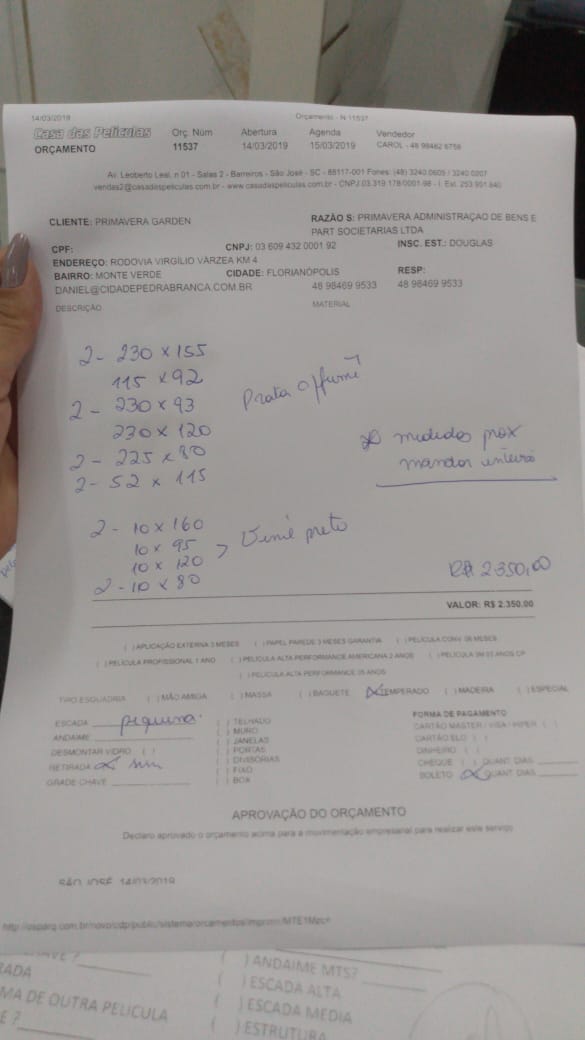 14/03/2019 Orçamento - N 11537
Casa das Películas Orç. Núm Abertura Agenda Vendedor
ORÇAMENTO 11537 14/03/2019 15/03/2019 CAROL - 48 98462 8758
Av. Leoberto Leal, n 01 - Salas 2 - Barreiros - São José - SC - 88117-001 Fones: (48) 3240 0605 / 3240 0207
vendas2@casadaspeliculas.com.br - www.casadaspeliculas.com.br - CNPJ 03.319.178/0001-98 - I. Est. 253.951.640
CLIENTE: PRIMAVERA GARDEN RAZÃO S: PRIMAVERA ADMINISTRAÇAO DE BENS E
PART SOCIETARIAS LTDA
CPF: CNPJ: 03 609 432 0001 92 INSC. EST.: DOUGLAS
ENDEREÇO: RODOVIA VIRGÍLIO VÁRZEA KM 4
BAIRRO: MONTE VERDE CIDADE: FLORIANÓPOLIS RESP:
DANIEL@CIDADEPEDRABRANCA.COM.BR 48 98469 9533 48 98469 9533
DESCRIÇÃO MATERIAL
2 - 230 x 155
115 x 92
2 - 230 x 93 Prata
230 x 120
2 - 225 x 80 medidas prox
2 - 52 x 115 mandar inteiro
2 - 10 x 160
10 x 95 > Vinil preto
10 x 120
2 - 10 x 80 R$ 2350,00
VALOR: R$ 2.350.00
( ) APLICAÇÃO EXTERNA 3 MESES ( ) PAPEL PAREDE 3 MESES GARANTIA ( ) PELÍCULA CONV. 06 MESES
( ) PELÍCULA PROFISSIONAL 1 ANO ( ) PELÍCULA ALTA PERFORMANCE AMERICANA 2 ANOS ( ) PELÍCULA 3M 03 ANOS CP
( ) PELÍCULA ALTA PERFORMANCE 05 ANOS
TIPO ESQUADRIA ( ) MÃO AMIGA ( ) MASSA ( ) BAGUETE (x) TEMPERADO ( ) MADEIRA ( ) ESPECIAL
ESCADA pequena ( ) TELHADO FORMA DE PAGAMENTO
ANDAIME ( ) MURO CARTÃO MASTER / VISA / HIPER ( )
( ) JANELAS CARTÃO ELO ( )
DESMONTAR VIDRO ( ) ( ) PORTAS DINHEIRO ( )
RETIRADA x sim ( ) DIVISÓRIAS CHEQUE ( ) QUANT DIAS
( ) FIXO BOLETO (x) QUANT DIAS
GRADE CHAVE ( ) BOX
APROVAÇÃO DO ORÇAMENTO
Declaro aprovado o orçamento acima para a movimentação empresarial para realizar este serviço
SÃO JOSÉ 14/03/2019
CHAVE ? ( ) ANDAIME MTS?
RADA ( ) ESCADA ALTA
MA DE OUTRA PELICULA ( ) ESCADA MEDIA
E ? ( ) ESTRUTURA